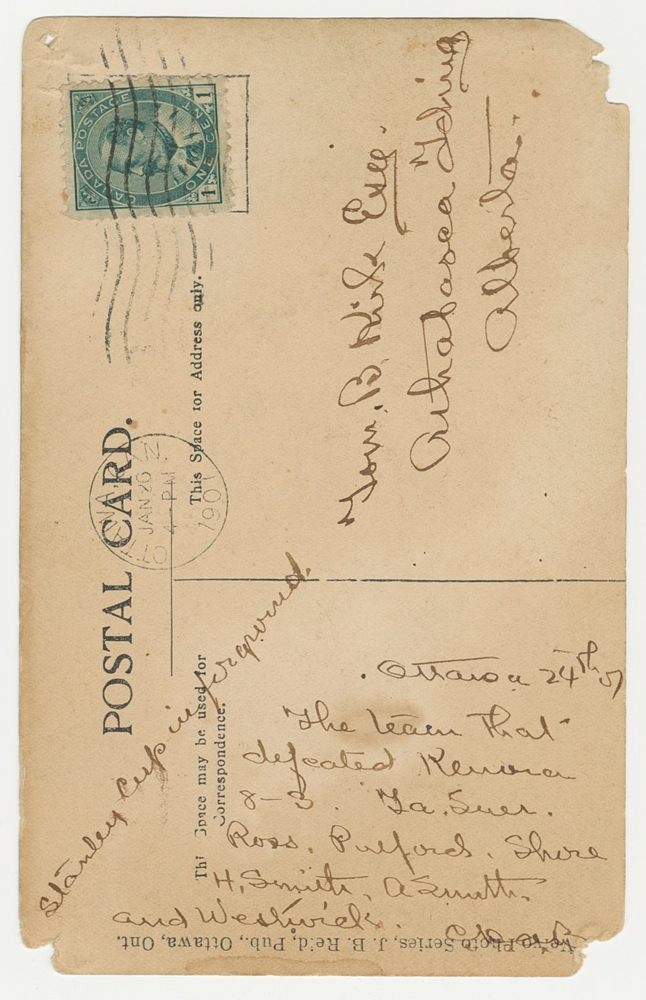 CANADA POSTAGE
ONE CENT
1 1
OTTAWA
JAN 26
4 - PM
POSTAL CARD.
This Space for Address only.
Tom. B. Kirk Esq.
Athabasca Landing
Alberta.
Space may be used for
Correspondence.
Stanley Cup in foreground.
Ottawa 24th
The team that
defeated Kenora
8-3. La Suer.
Ross, Pulford, Shore
H. Smith, A Smith,
and Westwick.
Photo Series, J. B. Reid, Pub., Ottawa, Ont.